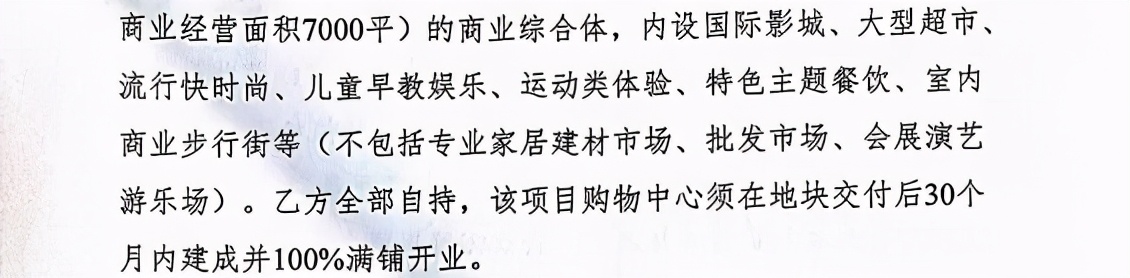 商业经营面积7000平）的商业综合体，内设国际影城、大型超市、
流行快时尚、儿童早教娱乐、运动类体验、特色主题餐饮、室内
商业步行街等（不包括专业家居建材市场、批发市场、会展演艺
游乐场）。乙方全部自持，该项目购物中心须在地块交付后30个
月内建成并100%满铺开业。